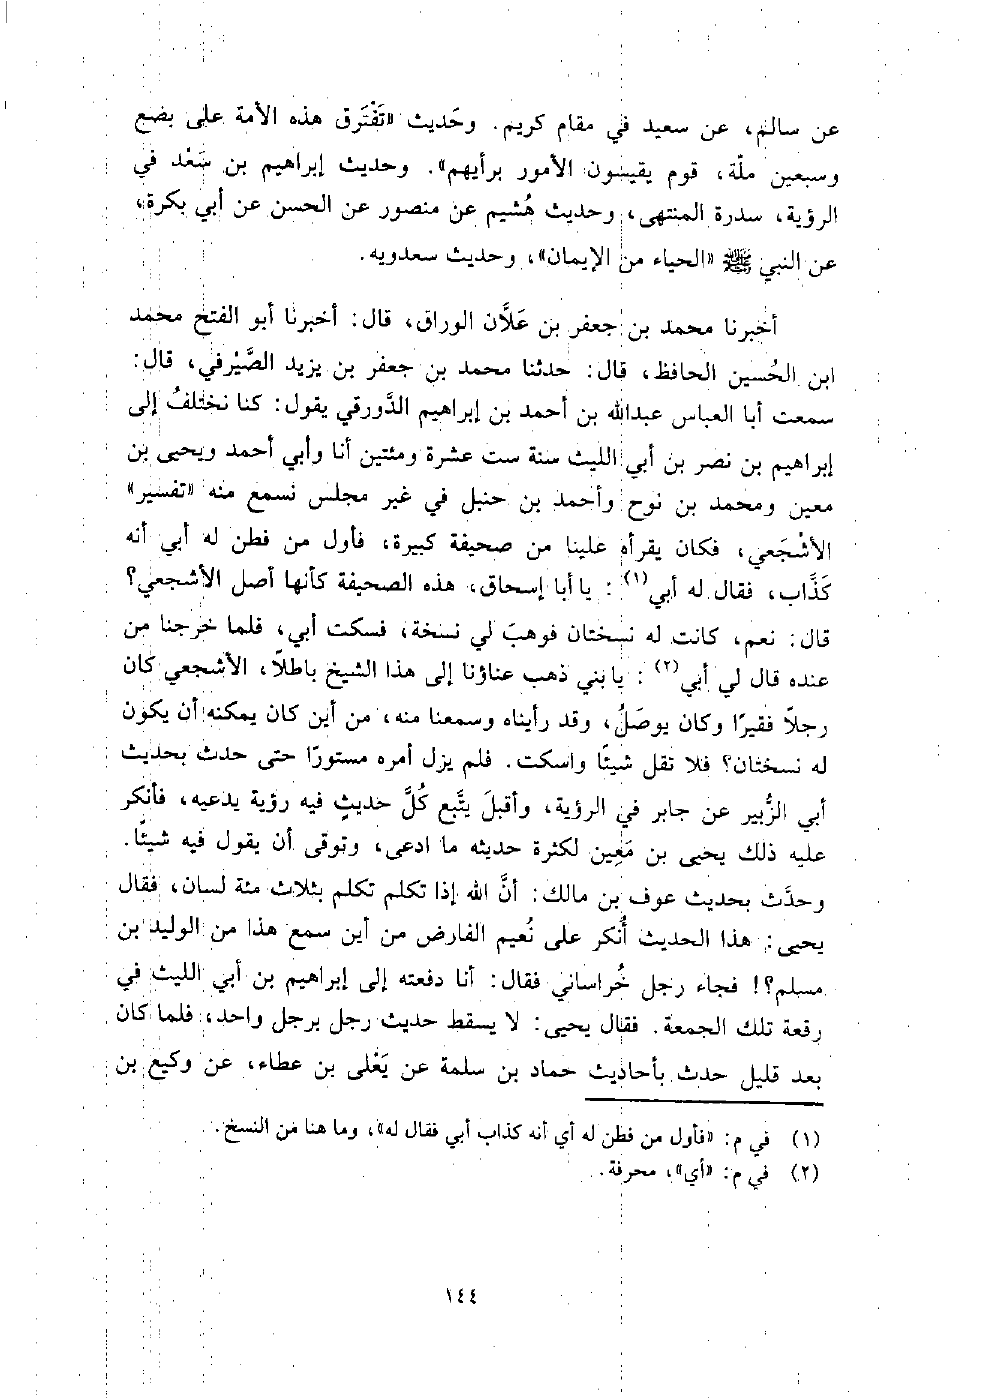 عن سالم، عن سعيد في مقام كريم. وحَديث «تَفْتَرق هذه الأمة على بضع
وسبعين ملّة، قوم يقيسون الأمور برأيهم». وحديث إبراهيم بن سَعْد في
الرؤية، سدرة المنتهى، وحديث هُشيم عن منصور عن الحسن عن أبي بكرة،
عن النبي ﷺ «الحياء من الإيمان»، وحديث سعدويه.
أخبرنا محمد بن جعفر بن عَلَّان الوراق، قال: أخبرنا أبو الفتح محمد
ابن الحُسين الحافظ، قال: حدثنا محمد بن جعفر بن يزيد الصَّيْرفي، قال:
سمعت أبا العباس عبدالله بن أحمد بن إبراهيم الدَّورقي يقول: كنا نختلفُ إلى
إبراهيم بن نصر بن أبي الليث سنة ست عشرة ومئتين أنا وأبي أحمد ويحيى بن
معين ومحمد بن نوح وأحمد بن حنبل في غير مجلس نسمع منه «تفسير»
الأشْجَعي، فكان يقرأه علينا من صحيفة كبيرة، فأول من فطن له أبي أنه
كَذَّاب، فقال له أبي(١): يا أبا إسحاق، هذه الصحيفة كأنها أصل الأشجعي؟
قال: نعم، كانت له نسختان فوهبَ لي نسخة، فسكت أبي، فلما خرجنا من
عنده قال لي أبي(٢): يا بني ذهب عناؤنا إلى هذا الشيخ باطلاً، الأشجعي كان
رجلاً فقيرًا وكان يوصَلُ، وقد رأيناه وسمعنا منه، من أين كان يمكنه أن يكون
له نسختان؟ فلا تقل شيئًا واسكت. فلم يزل أمره مستورًا حتى حدث بحديث
أبي الزُّبير عن جابر في الرؤية، وأقبلَ يتَّبع كُلَّ حديثٍ فيه رؤية يدعيه، فأنكر
عليه ذلك يحيى بن مَعِين لكثرة حديثه ما ادعى، وتوقى أن يقول فيه شيئًا.
وحدَّث بحديث عوف بن مالك: أنَّ الله إذا تكلم تكلم بثلاث مئة لسان، فقال
يحيى: هذا الحديث أُنكر على نُعيم الفارض من أين سمع هذا من الوليد بن
مسلم؟! فجاء رجل خُراساني فقال: أنا دفعته إلى إبراهيم بن أبي الليث في
رقعة تلك الجمعة. فقال يحيى: لا يسقط حديث رجل برجل واحد، فلما كان
بعد قليل حدث بأحاديث حماد بن سلمة عن يَعْلى بن عطاء، عن وكيع بن
(١) في م: «فأول من فطن له أي أنه كذاب أبي فقال له»، وما هنا من النسخ.
(٢) في م: «أي»، محرفة.
١٤٤